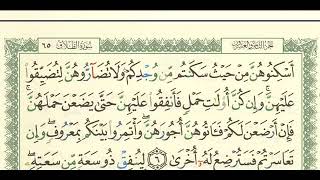 الجزء الثامن والعشرون سورة الطلاق ٦٥
أَسْكِنُوهُنَّ مِنْ حَيْثُ سَكَنتُم مِّن وُجْدِكُمْ وَلَا تُضَآرُّوهُنَّ لِتُضَيِّقُوا۟
عَلَيْهِنَّ ۚ وَإِن كُنَّ أُو۟لَٰتِ حَمْلٍ فَأَنفِقُوا۟ عَلَيْهِنَّ حَتَّىٰ يَضَعْنَ حَمْلَهُنَّ ۚ
فَإِنْ أَرْضَعْنَ لَكُمْ فَـَٔاتُوهُنَّ أُجُورَهُنَّ ۖ وَأْتَمِرُوا۟ بَيْنَكُم بِمَعْرُوفٍ ۖ وَإِن
تَعَاسَرْتُمْ فَسَتُرْضِعُ لَهُۥٓ أُخْرَىٰ ٦ لِيُنفِقْ ذُو سَعَةٍ مِّن سَعَتِهِۦ ۖ